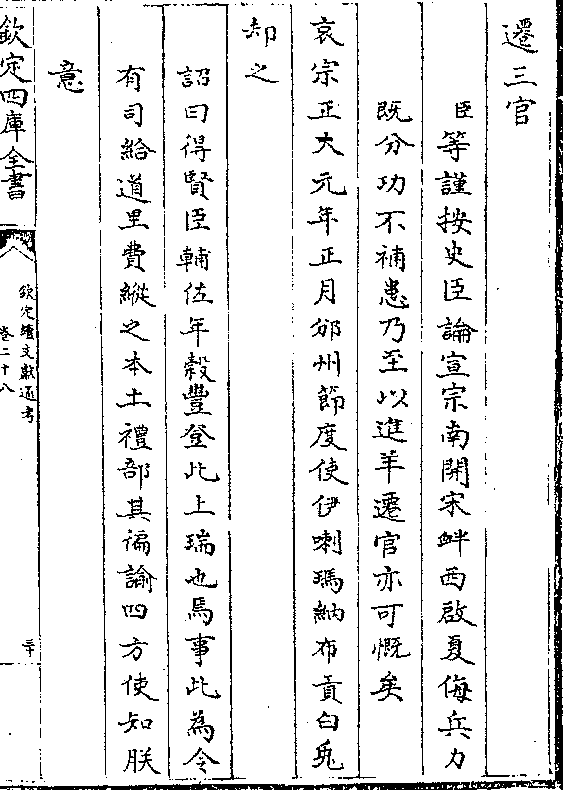 遷三官
臣等謹按史臣論宣宗南開宋衅西啟夏侮兵力
既分功不補患乃至以進羊遷官亦可慨矣
哀宗正大元年正月邠州節度使伊喇瑪納布貢白兎
却之
詔曰得賢臣輔佐年穀豐登此上瑞也焉事此為令
有司給道里費縱之本土禮部其徧諭四方使知朕
意
欽定四庫全書
欽定續文獻通考
卷二十八
三十